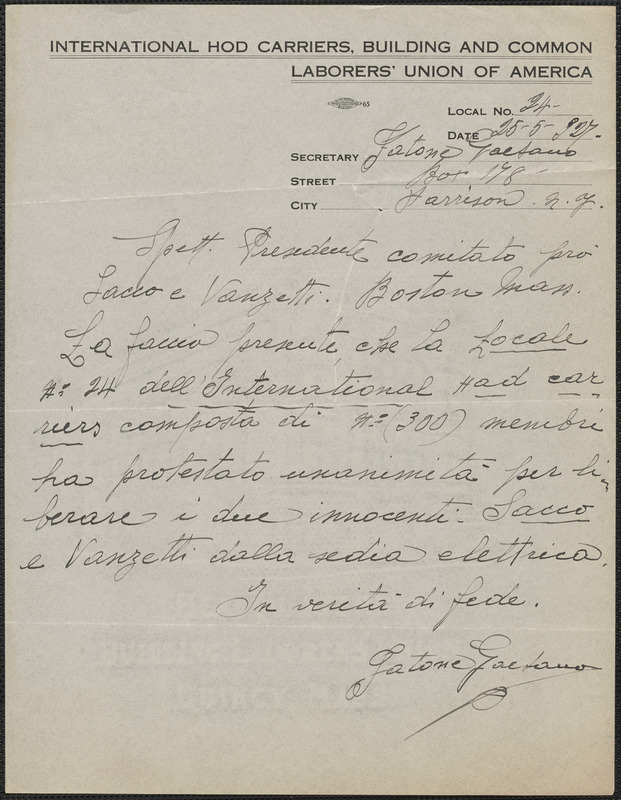 INTERNATIONAL HOD CARRIERS, BUILDING AND COMMON
LABORERS' UNION OF AMERICA
65
LOCAL NO. 24-
DATE 25-5-927-
SECRETARY Fatone Gaetano
STREET Box 178-
CITY Harrison. N.Y.
Spett. Presidente comitato pro
Sacco e Vanzetti. Boston Mass.
La faccio presente, che la Locale
N.º 24 dell'International Had car
riers composta di Nº (300) membri
ha protestato unanimità per li-
berare i due innocenti. Sacco
e Vanzetti dalla sedia elettrica.
In verità di fede.
Fatone Gaetano